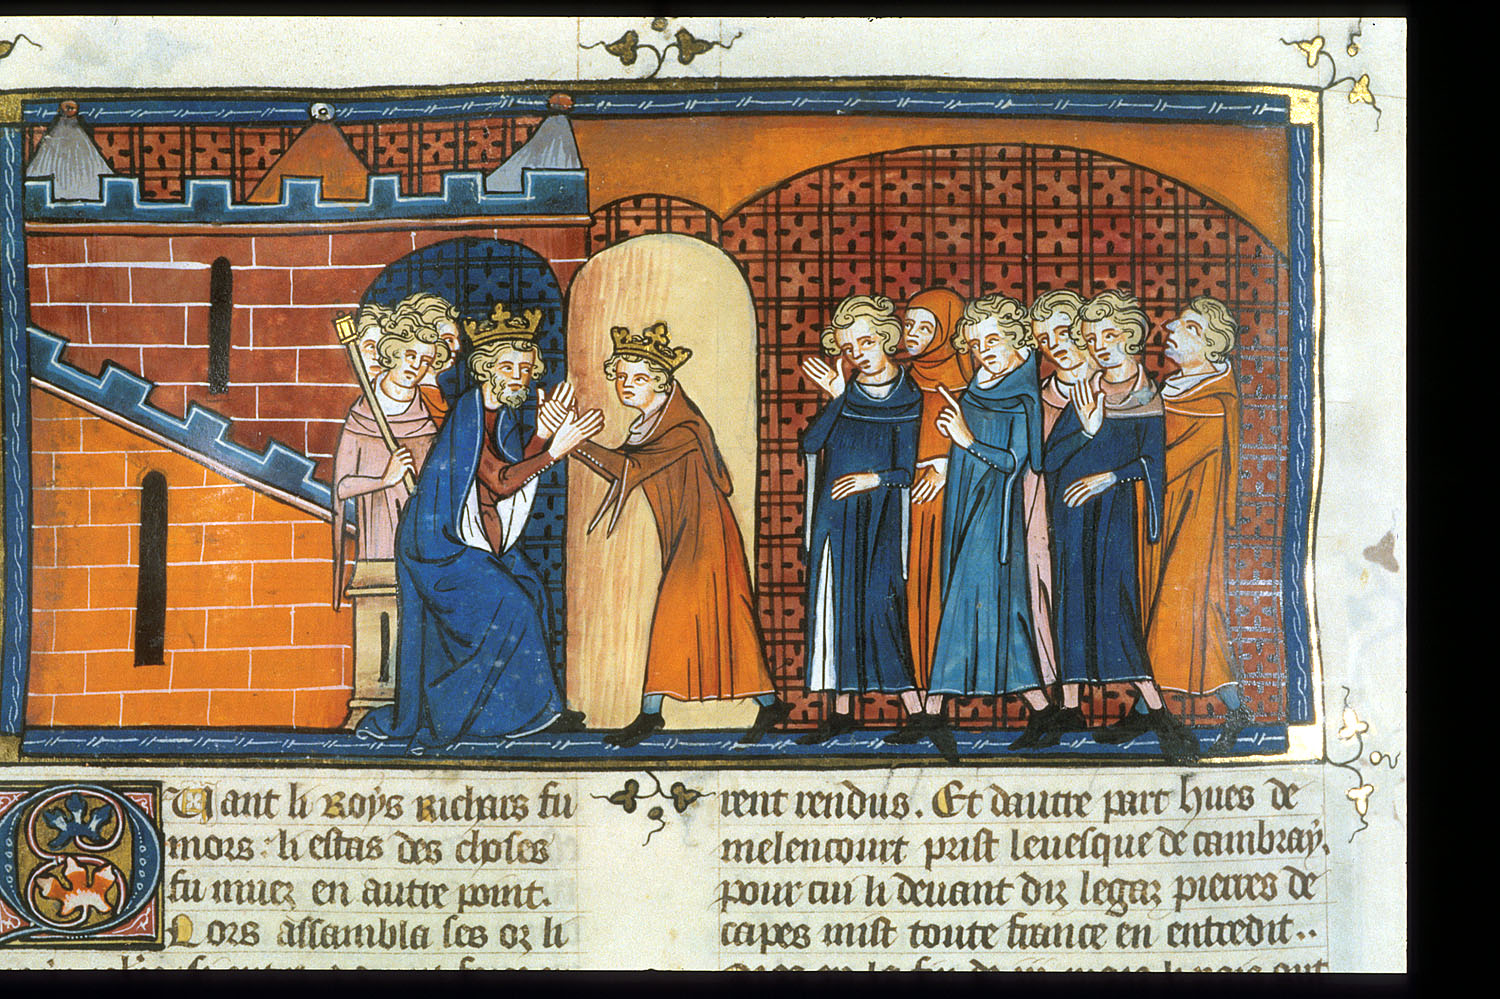 Quant li Roys Richars fu
mors: li estas des choses
fu muez en autre point.
Lors assambla ses oz li
rent rendus. Et dautre part hues de
melencourt prist levesque de cambray.
pour cui li devant diz legaz pierres de
capes mist toute france en entredit..